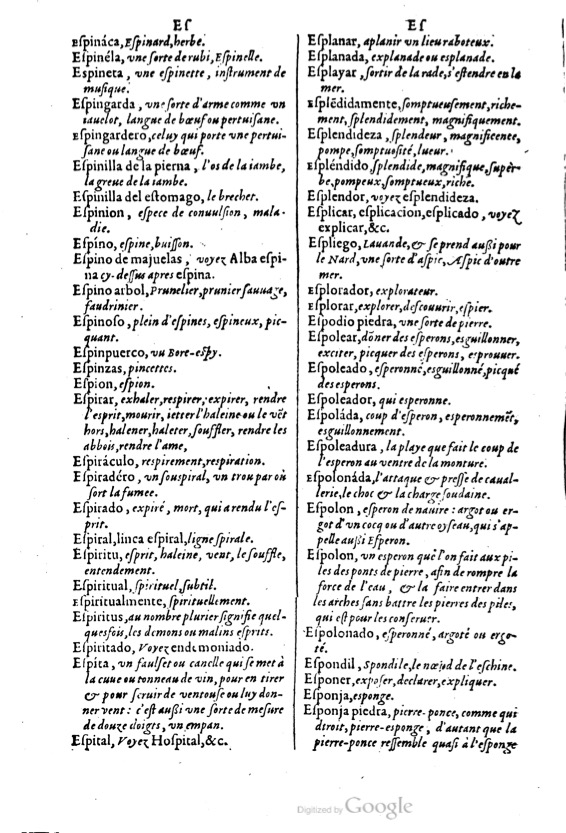 Eſ
Eſpináca, Eſpinard, herbe.
Eſpinéla, vne ſorte de rubi, Eſpinelle.
Eſpineta, vne eſpinette, inſtrument de
muſique.
Eſpingarda, vne ſorte d'arme comme vn
iauelot, langue de bœuf ou pertuiſane.
Eſpingardero, celuy qui porte vne pertui-
ſane ou langue de bœuf.
Eſpinilla de la pierna, l'os de la iambe,
la greue de la iambe.
Eſpinilla del eſtomago, le brechet.
Eſpinion, eſpece de conuulſion, mala-
die.
Eſpíno, eſpine, buiſſon.
Eſpino de majuelas, voyez Alba eſpi-
na cy-deſſus apres eſpina.
Eſpino arbol, Prunelier, prunier ſauuage,
faudrinier.
Eſpinoſo, plein d'eſpines, eſpineux, pic-
quant.
Eſpinpuerco, vn Bore-eſpy.
Eſpinzas, pincettes.
Eſpion, eſpion.
Eſpirar, exhaler, reſpirer, expirer, rendre
l'eſprit, mourir, ietter l'haleine ou le vēt
hors, halener, haleter, ſouffler, rendre les
abbois, rendre l'ame,
Eſpiráculo, reſpirement, reſpiration.
Eſpiradéro, vn ſouspiral, vn trou par où
ſort la fumee.
Eſpirado, expiré, mort, qui a rendu l'eſ-
prit.
Eſpiral, linea eſpiral, ligne ſpirale.
Eſpiritu, eſprit, haleine, vent, le ſouffle,
entendement.
Eſpiritual, ſpirituel, ſubtil.
Eſpiritualmente, ſpirituellement.
Eſpiritus, au nombre plurier ſignifie quel-
quesfois, les demons ou malins eſprits.
Eſpiritado, Voyez endemoniado.
Eſpita, vn faulſet ou canelle qui ſe met à
la cuue ou tonneau de vin, pour en tirer
& pour ſeruir de ventouſe ou luy don-
ner vent: c'eſt außi vne ſorte de meſure
de douze doigts, vn empan.
Eſpital, Voyez Hoſpital, &c.
Eſ
Eſplanar, aplanir vn lieu raboteux.
Eſplanada, explanade ou esplanade.
Eſplayar, ſortir de la rade, s'eſtendre en la
mer.
Eſplēdidamente, ſomptueuſement, riche-
ment, ſplendidement, magnifiquement.
Eſplendideza, ſplendeur, magnificence,
pompe, ſomptuoſité, lueur.
Eſpléndido, ſplendide, magnifique, ſuper-
be, pompeux, ſomptueux, riche.
Eſplendor, voyez eſplendideza.
Eſplicar, eſplicacion, eſplicado, voyez
explicar, &c.
Eſpliego, Lauande, & ſe prend außi pour
le Nard, vne ſorte d'aſpic, Aſpic d'outre
mer.
Eſplorador, explorateur.
Eſplorar, explorer, deſcouurir, eſpier.
Eſpodio piedra, vne ſorte de pierre.
Eſpolear, dōner des eſperons, esguillonner,
exciter, picquer des eſperons, eſprouuer.
Eſpoleado, eſperonné, esguillonné, picqué
des esperons.
Eſpoleador, qui esperonne.
Eſpoláda, coup d'eſperon, esperonnemēt,
esguillonnement.
Eſpoleadura, la playe que fait le coup de
l'esperon au ventre de la monture.
Eſpolonáda, l'attaque & preſſe de caual-
lerie, le choc & la charge ſoudaine.
Eſpolon, eſperon de nauire: argot ou er-
got d'vn cocq ou d'autre oyſeau, qui s'ap-
pelle außi Eſperon.
Eſpolon, vn esperon que l'on fait aux pi-
les des ponts de pierre, afin de rompre la
force de l'eau, & la faire entrer dans
les arches ſans battre les pierres des piles,
qui eſt pour les conſeruer.
Eſpolonado, eſperonné, argoté ou ergo-
té.
Eſpondil, Spondile, le nœud de l'eſchine.
Eſponer, expoſer, declarer, expliquer.
Eſponja, esponge.
Eſponja piedra, pierre-ponce, comme qui
diroit, pierre-esponge, d'autant que la
pierre-ponce reſſemble quaſi à l'eſponge
Digitized by Google